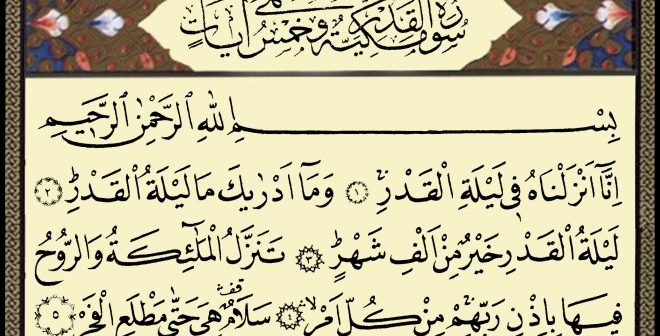 سورة القدر مكية وهي خمس آيات
بسم الله الرحمن الرحيم
اِنَّٓا اَنْزَلْنَاهُ ف۪ي لَيْلَةِ الْقَدْرِۚ ﴿١﴾ وَمَٓا اَدْرٰيكَ مَا لَيْلَةُ الْقَدْرِۜ ﴿٢﴾
لَيْلَةُ الْقَدْرِ خَيْرٌ مِنْ اَلْفِ شَهْرٍۜ ﴿٣﴾ تَنَزَّلُ الْمَلٰٓئِكَةُ وَالرُّوحُ
ف۪يهَا بِاِذْنِ رَبِّهِمْۚ مِنْ كُلِّ اَمْرٍۙ ﴿٤﴾ سَلَامٌ۠ هِيَ حَتّٰى مَطْلَعِ الْفَجْرِ ﴿٥﴾